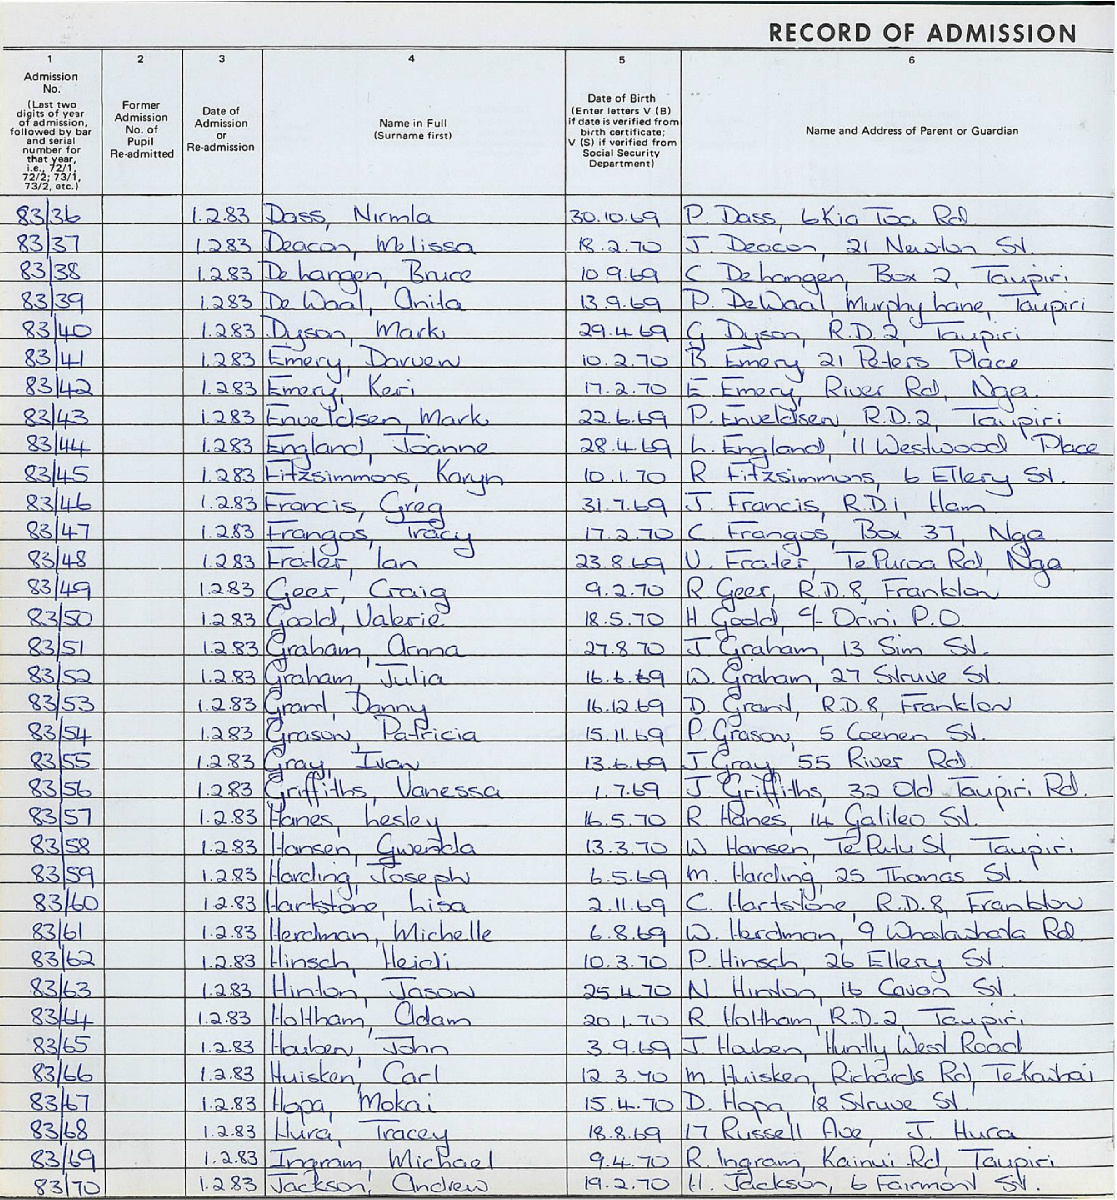 RECORD OF ADMISSION
1 2 3 4 5 6
Admission No. (Last two digits of year of admission, followed by bar and serial number for that year, i.e., 72/1, 72/2; 73/1, 73/2, etc.)
Former Admission No. of Pupil Re-admitted
Date of Admission or Re-admission
Name in Full (Surname first)
Date of Birth (Enter letters V (B) if date is verified from birth certificate; V (S) if verified from Social Security Department)
Name and Address of Parent or Guardian
83/36 1.2.83 Dass, Nirmla 30.10.69 P. Dass, 6 Kia Toa Rd
83/37 1.2.83 Deacon, Melissa 18.2.70 J. Deacon, 21 Newton St.
83/38 1.2.83 De Langen, Bruce 10.9.69 C De Langen, Box 2, Taupiri
83/39 1.2.83 De Waal, Anita 13.9.69 P. De Waal, Murphy Lane, Taupiri
83/40 1.2.83 Dyson, Mark 29.4.69 G Dyson, R.D.2, Taupiri
83/41 1.2.83 Emery, Darven 10.2.70 B Emery 21 Peters Place
83/42 1.2.83 Emery, Keri 17.2.70 E Emery, River Rd, Nga.
83/43 1.2.83 Enveldsen, Mark 22.6.69 P. Enveldsen, R.D.2, Taupiri
83/44 1.2.83 England, Joanne 28.4.69 L. England, 11 Westwood Place
83/45 1.2.83 Fitzsimmons, Karyn 10.1.70 R Fitzsimmons, 6 Ellery St.
83/46 1.2.83 Francis, Greg 31.7.69 J. Francis, R.D.1, Ham
83/47 1.2.83 Frangos, Tracy 17.2.70 C. Frangos, Box 37, Nga
83/48 1.2.83 Frater, Ian 23.8.69 V. Frater, Te Puroa Rd, Nga
83/49 1.2.83 Geer, Craig 9.2.70 R Geer, R.D.8, Frankton
83/50 1.2.83 Goold, Valerie 18.5.70 H Goold, c/- Orini P.O.
83/51 1.2.83 Graham, Anna 27.8.70 J Graham, 13 Sim St.
83/52 1.2.83 Graham, Julia 16.6.69 W. Graham, 27 Struve St.
83/53 1.2.83 Grant, Danny 16.12.69 D. Grant, R.D.8, Frankton
83/54 1.2.83 Grason, Patricia 15.11.69 P. Grason, 5 Coenen St.
83/55 1.2.83 Gray, Ivan 13.6.69 J Gray, 55 River Rd
83/56 1.2.83 Griffiths, Vanessa 1.7.69 J Griffiths, 32 Old Taupiri Rd.
83/57 1.2.83 Hanes, Lesley 16.5.70 R Hanes, 14 Galileo St.
83/58 1.2.83 Hansen, Gwenda 13.3.70 W Hansen, Te Putu St, Taupiri
83/59 1.2.83 Harding, Joseph 6.5.69 M. Harding, 25 Thomas St.
83/60 1.2.83 Hartstone, Lisa 2.11.69 C. Hartstone, R.D.8, Frankton
83/61 1.2.83 Herdman, Michelle 6.8.69 W. Herdman, 9 Whatawhata Rd
83/62 1.2.83 Hinsch, Heidi 10.3.70 P. Hinsch, 26 Ellery St.
83/63 1.2.83 Hinton, Jason 25.4.70 N Hinton, 16 Cavan St.
83/64 1.2.83 Holtham, Adam 20.1.70 R Holtham, R.D.2, Taupiri
83/65 1.2.83 Houben, John 3.9.69 J. Houben, Huntly West Road
83/66 1.2.83 Huisken, Carl 12.3.70 M. Huisken, Richards Rd,
83/67 1.2.83 Hopa, Mokai 15.4.70 D. Hopa, 18 Struve St.
83/68 1.2.83 Hura, Tracey 18.8.69 17 Russell Ave, J. Hura
83/69 1.2.83 Ingram, Michael 9.4.70 R. Ingram, Kainui Rd, Taupiri
83/70 1.2.83 Jackson, Andrew 19.2.70 H. Jackson, 6 Fairmont St.